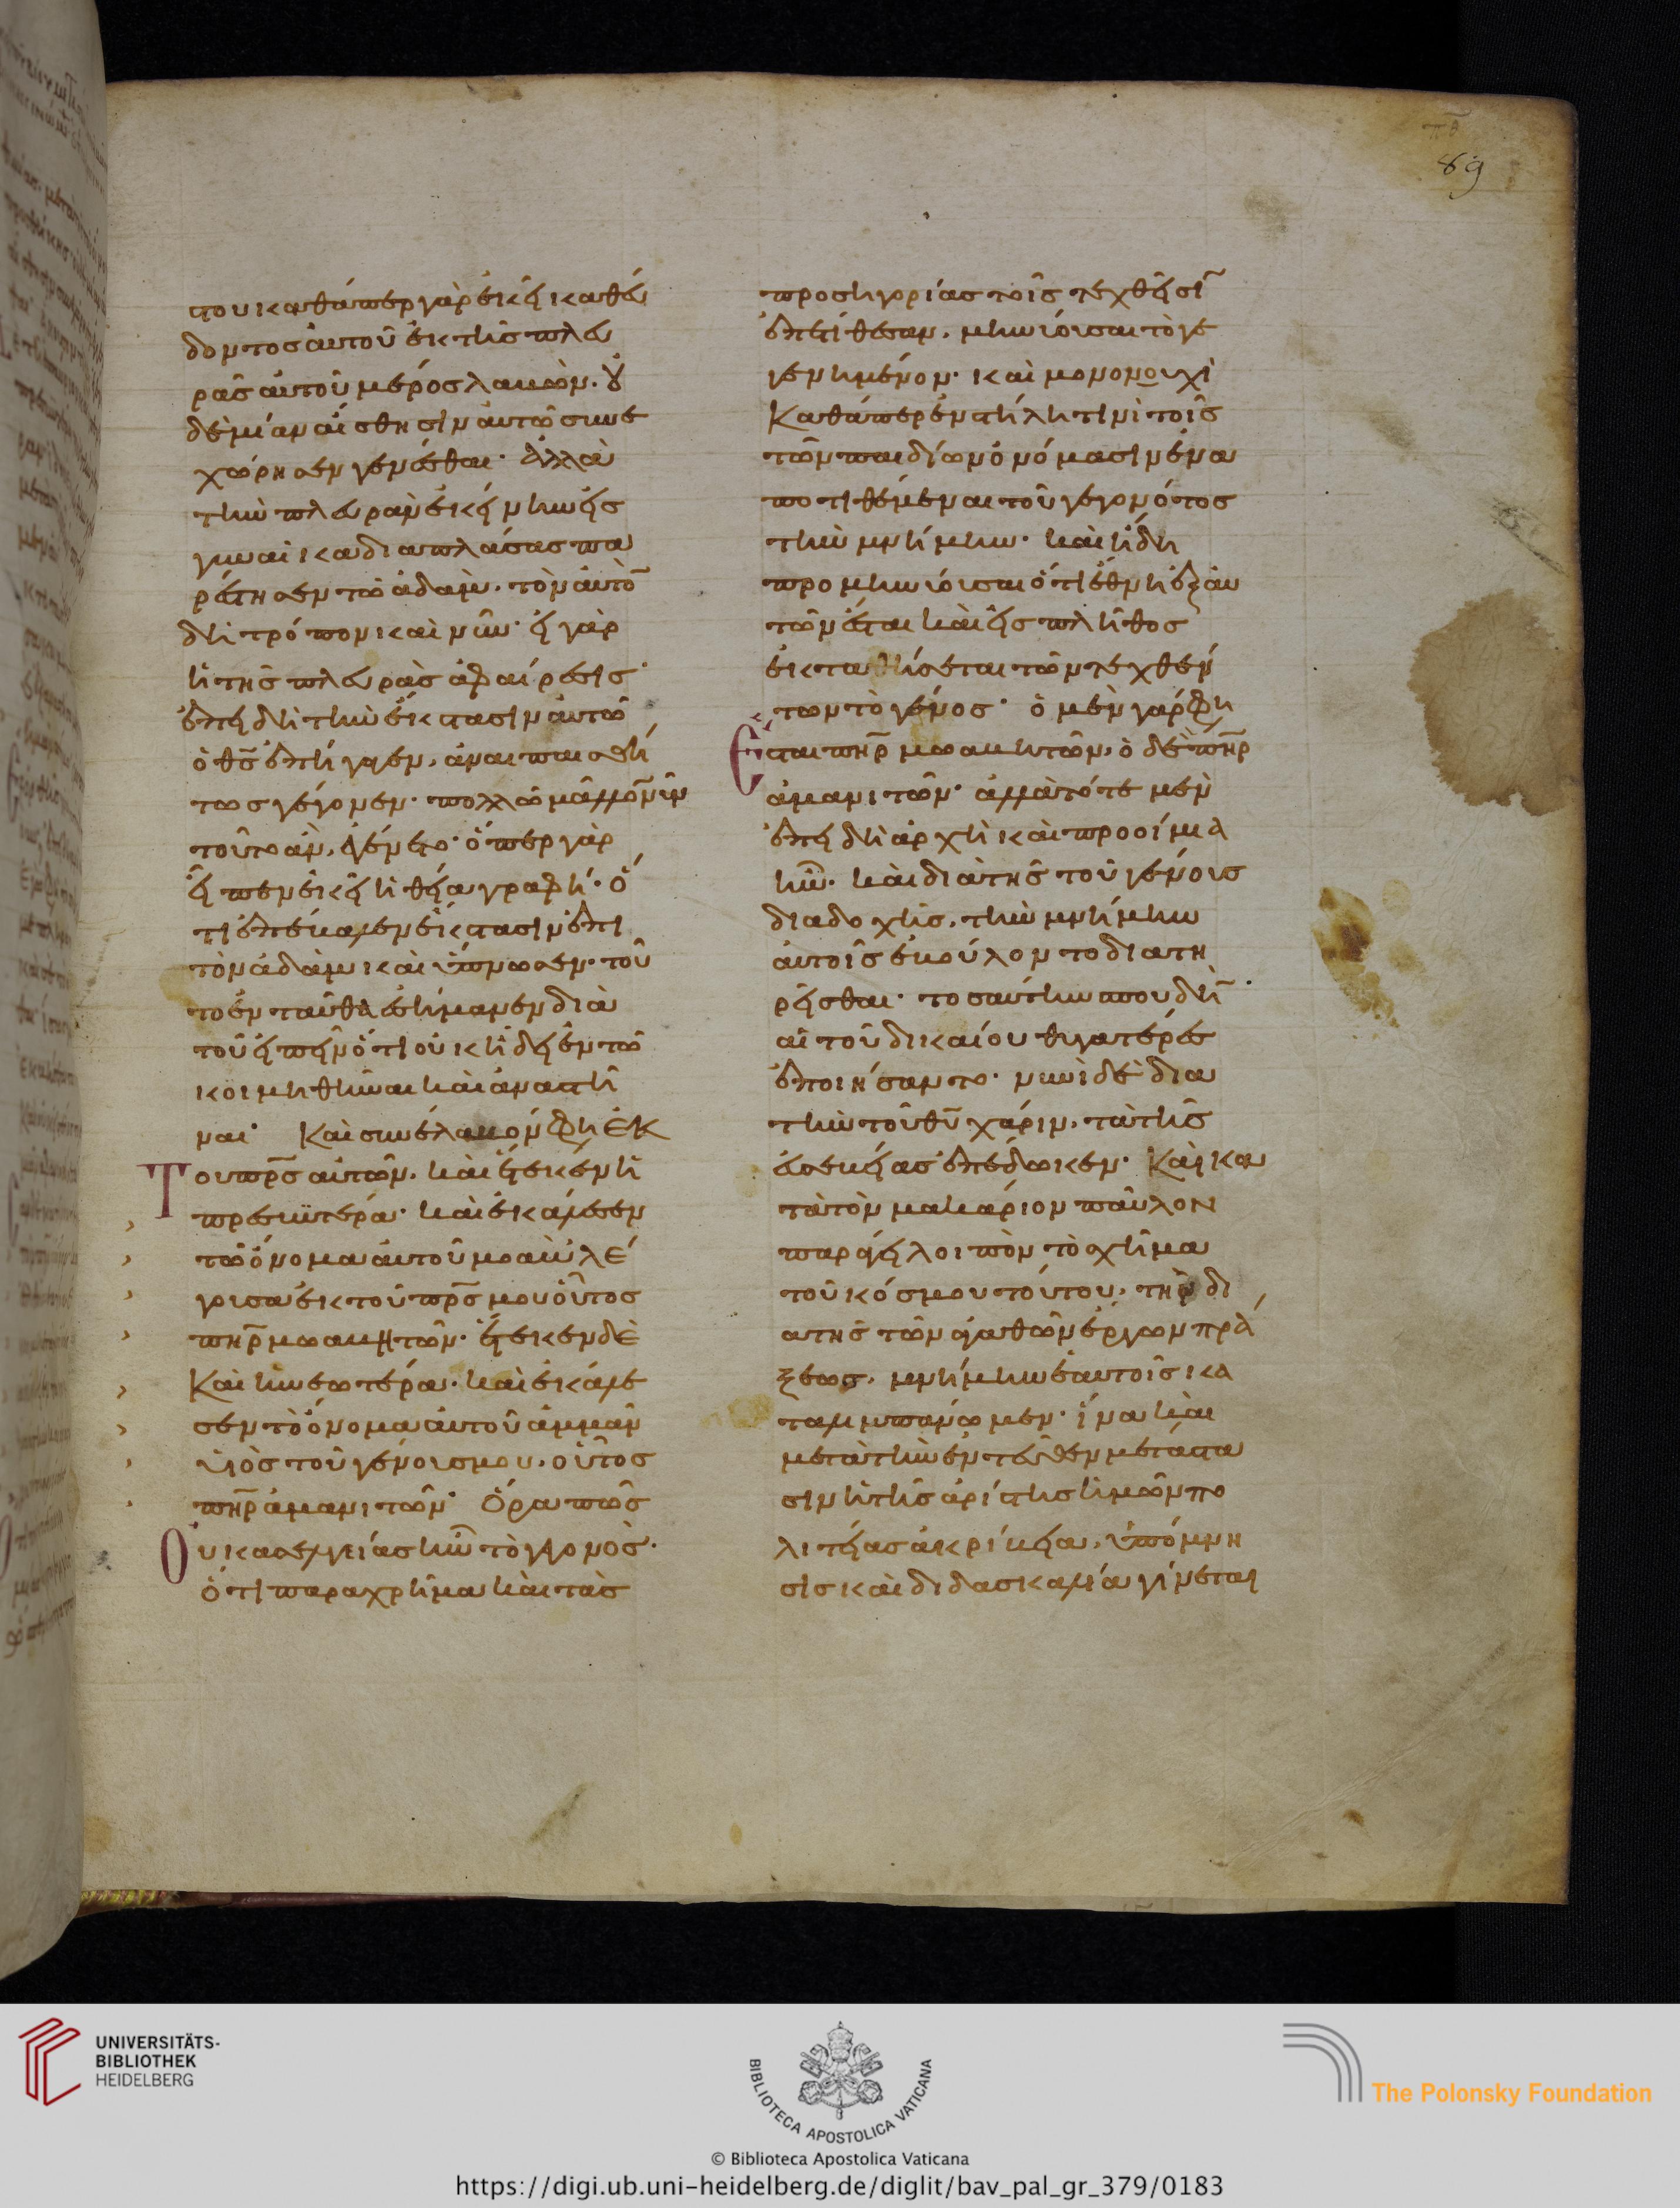 πθ
89
που καθάπερ γὰρ ἐκεῖ καθεύ
δοντος αὐτοῦ ἐκ τῆς πλευ
ρᾶς αὐτοῦ μέρος λαβὼν. οὐ
δὲ μίαν αἴσθησιν αὐτῶ συνε
χώρησεν γενέσθαι· ἀλλὰ
τὴν πλευρὰν ἐκείνην εἰς
γυναῖκα διαπλάσας πα
ρέστησεν τῶ ἀδαμ. τὸν αὐτὸ
δὴ τρόπον καὶ νῦν· εἰ γὰρ
ἡ τῆς πλευρὰς ἀφαίρεσις·
ἐπειδὴ τὴν ἔκστασιν αὐτῶ
ὁ θς ἐπήγαγεν, ἀναισθή
τως γέγονεν· πολλῶ μᾶλλον νῦν
τοῦτο ἂν, ἐγένετο· ὅπερ γὰρ
εἶπεν ἐκεῖ ἡ θεία γραφή· ὅ
τι ἐπέβαλεν ἔκστασιν ἐπι
τὸν ἀδὰμ καὶ ὕπνωσεν· τοῦ
το ἐνταῦθα ἐσήμανεν διὰ
τοῦ εἰπεῖν ὅτι οὐκ ἤδει ἐν τῶ
κοιμηθῆναι καὶ ἀναστῆ
ναι· Καὶ συνέλαβον φη ἐκ
Του πρς αὐτῶν. καὶ ἔτεκεν ἡ
πρεσβυτέρα· καὶ ἐκάλεσεν
τῶ ὄνομα αὐτοῦ μωαὺ λέ
γουσα ἐκ τοῦ πρς μου οὗτος
πηρ μωαβητῶν· ἔτεκεν δὲ
Καὶ ἡ νεωτέρα· καὶ ἐκάλε
σεν τὸ ὄνομα αὐτοῦ ἀμμαν
υἱὸς τοῦ γένους μου. οὗτος
πηρ ἀμανιτῶν· Ὁρα πῶς
Οὐκ ἀσελγείας ἦν τὸ γεγονὸς·
ὅτι παραχρῆμα καὶ τὰς
προσηγορίας τοῖς τεχθεῖσι
ἐπετίθεσαν. μηνύουσαι τὸ γε
γενημένον· καὶ μονονουχὶ
Καθάπερ ἐν στήλη τινὶ τοῖς
τῶν παιδίων ὀνόμασιν ἐνα
ποτιθέμεναι τοῦ γεγονότος
τὴν μνήμην· καὶ ἤδη
προμηνύουσαι ὅτι ἔθνη ἐξ αὐ
τῶν ἔσται καὶ εἰς πλῆθος
ἐκταθήσεται τῶν τεχθέν
των τὸ γένος· ὁ μὲν γάρ φη
Ἔσται πηρ μωαβητῶν, ὁ δὲ πηρ
ἀμανιτῶν· ἀλλὰ τότε μὲν
ἐπειδὴ ἀρχὴ καὶ προοίμια
ἦν. καὶ διὰ τῆς τοῦ γένους
διαδοχῆς, τὴν μνήμην
αὐτοῖς ἐβούλοντο διατη
ρεῖσθαι· τοσαύτην σπουδὴ·
αἱ τοῦ δικαίου θυγατέρες
ἐποιήσαντο· νυνὶ δὲ δια
τὴν τοῦ θυ χάριν, τὰ τῆς
εὐσεβείας ἐπέδωκεν· Καὶ κα
τὰ τὸν μακάριον παῦλον
παράγει λοιπὸν τὸ σχῆμα
τοῦ κόσμου τούτου. τὴν δι
α τῆς τῶν ἀγαθῶν ἔργων πρά
ξεως, μνήμην ἑαυτοῖς κα
ταλιμπάνωμεν· ἵνα καὶ
μετὰ τὴν ἐντεῦθεν μετάστα
σιν ἡ τῆς ἀρίστης ἡμῶν πο
λιτείας ἀκρίβεια, ὑπόμνη
σις καὶ διδασκαλία γίνεται
UNIVERSITÄTS-
BIBLIOTHEK
HEIDELBERG
BIBLIOTECA APOSTOLICA VATICANA
The Polonsky Foundation
© Biblioteca Apostolica Vaticana
https://digi.ub.uni-heidelberg.de/diglit/bav_pal_gr_379/0183